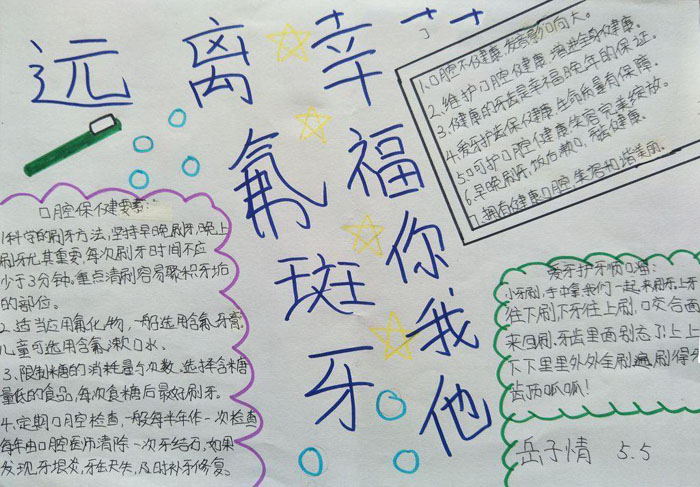 远离氟斑牙
幸福你我他
1.口腔不健康,发育影响大。
2.维护口腔健康,增进全身健康。
3.健康的牙齿是幸福晚年的保证。
4.爱牙护齿保健康,生命质量有保障。
5.呵护口腔健康笑容完美绽放。
6.早晚刷牙,饭后漱口,
7.拥有健康口腔,生活和谐美丽。
口腔保健要素:
1科学的刷牙方法,坚持早晚刷牙,晚上
刷牙尤其重要,每次刷牙时间不应
少于3分钟,重点清刷容易聚积牙垢
的部位。
2.适当应用氟化物,一般选用含氟牙膏,
儿童可选用含氟漱口水。
3.限制糖的消耗量与次数,选择含糖
量低的食品,每次食糖后最好刷牙。
4.定期口腔检查,一般每半年作一次检查
每年由口腔医师清除一次牙结石,如果
发现牙龈炎,牙缺失,及时补牙修复。
爱牙护牙顺口溜:
小牙刷,手中拿,我们一起来刷牙上牙
往下刷,下牙往上刷,口咬合面
来回刷,牙齿里面别忘了上上
下下里里外外全刷遍,刷得牙
齿顶呱呱!
岳子情 5.5